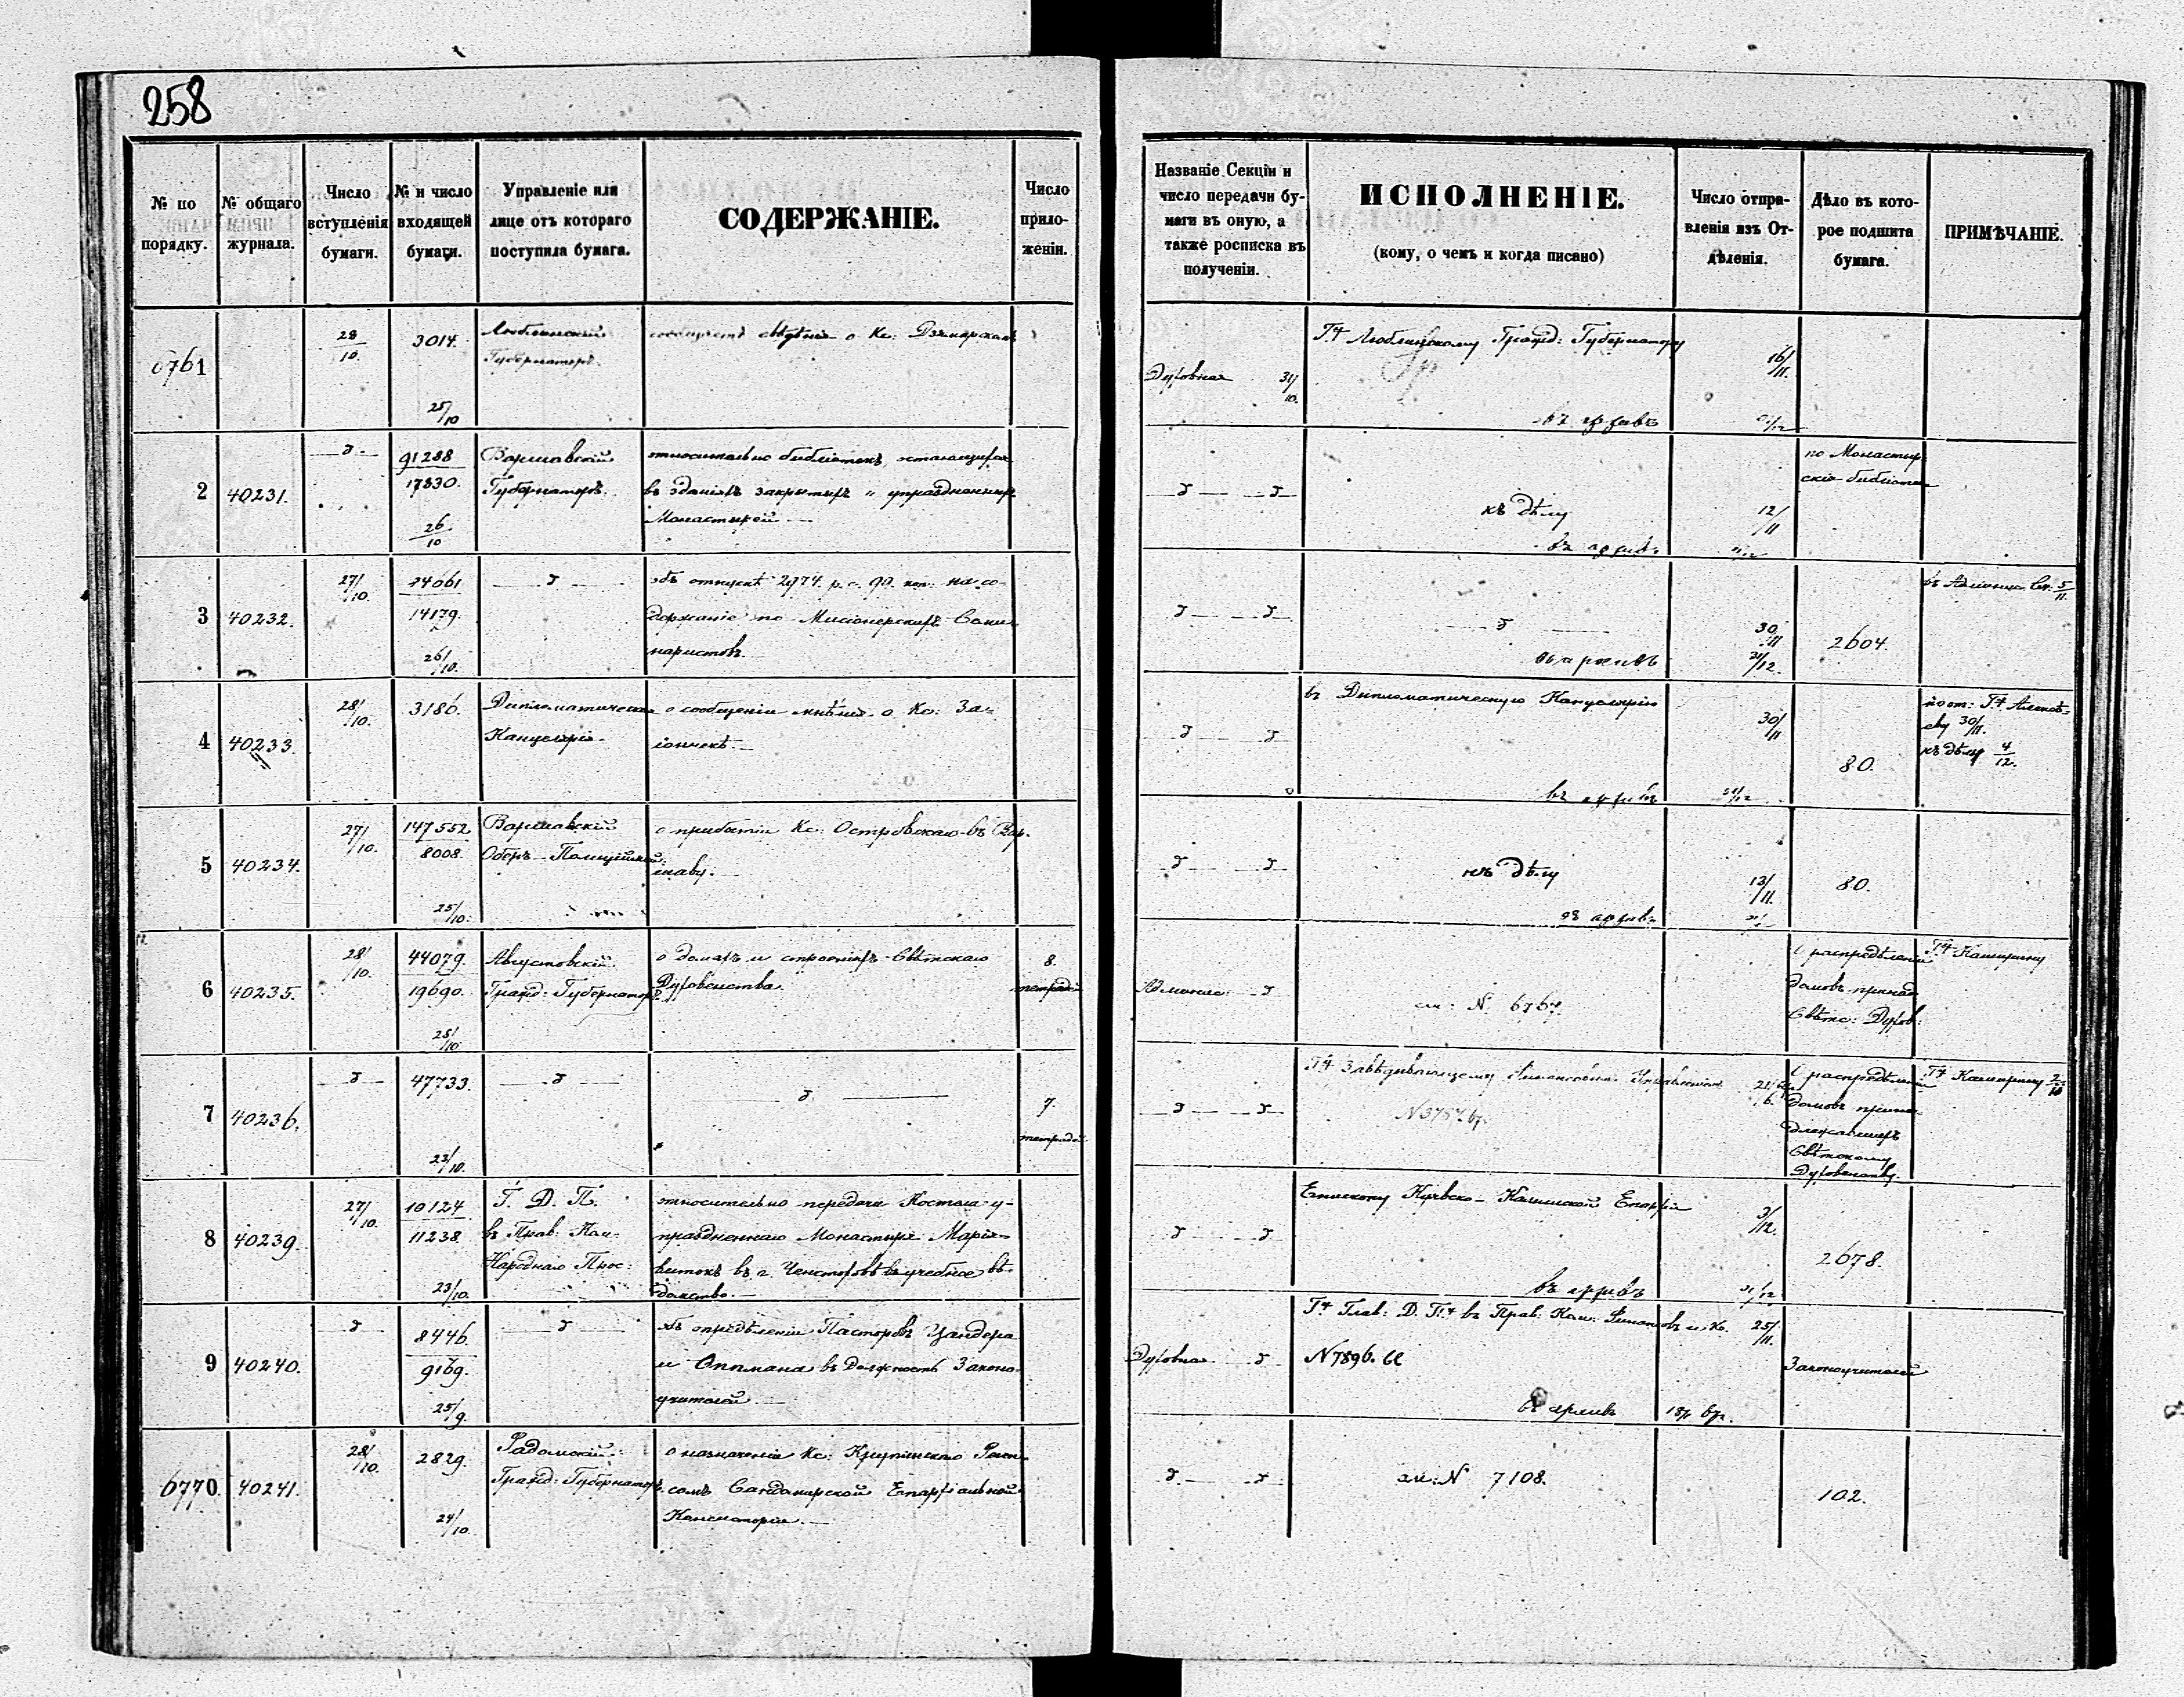 258
№ по порядку.
№ общаго журнала.
Число вступленія бумаги.
№ и число входящей бумаги.
Управленіе или лице отъ котораго поступила бумага.
СОДЕРЖАНІЕ.
Число приложеніи.
Названіе Секціи и число передачи бумаги въ оную, а также росписка въ полученіи.
ИСПОЛНЕНІЕ.
(кому, о чемъ и когда писано)
Число отправленія изъ Отдѣленія.
Дѣло въ которое подшита бумага.
ПРИМѢЧАНІЕ.
6761
28/10
3014.
25/10
Люблинскій
Губернаторъ.
свѣдѣнія о Кс:
Духовная 31/10.
Г.ну Люблинскому Гражд: Губернатору
16/11.
въ архивъ
2
40231.
91288
17830.
26/10
Варшавскій
Губернаторъ.
относительно библіотекъ, остающихся
въ зданіяхъ закрытыхъ и упраздненныхъ
Монастырей.
къ дѣлу
12/11
въ архивъ
по Монастыр
скія библіотеки
3
40232.
27/10.
24061
14179.
26/10.
объ отпускѣ 2974 р. с. 90 коп: на со-
держаніе по Мисіонерскихъ Семи
наристовъ.
30/11
въ архивъ
31/12.
2604.
5/11.
4
40233.
28/10.
3186.
Дипломатическая
Канцелярія.
о сообщеніи мнѣнія о Кс: За-
іончекѣ.
въ Дипломатическую Канцелярію
30/11
въ архивъ
31/12
80.
30/11.
къ дѣлу 4/12.
5
40234.
27/10.
147552
8008.
25/10.
Варшавскій
Оберъ-Полицій
о прибытіи Кс: Островскаго въ Вар-
шаву.
къ дѣлу
13/11.
въ архивъ
80.
6
40235.
28/10.
44079.
19690.
28/10
Августовскій
Гражд: Губернаторъ.
о домахъ и строеніяхъ Свѣтскаго
Духовенства.
8.
тетрадей
см: № 6767.
О распредѣленіи
домовъ принад
Свѣтс: Духов:
Г.ну Каширину
7
40236.
47733.
23/10.
7.
тетрадей
Г.ну Завѣдывающему
О распредѣленіи
домовъ прина-
длежавшихъ
Свѣтскому
Духовенству.
Г.ну Каширину
8
40239.
27/10.
10124
11238
23/10.
Г. Д. П.
въ Прав. Ком:
Народнаго Прос:
относительно передачи Костела у-
праздненнаго Монастыря Маріа-
витокъ въ г. Ченстоховѣ въ учебное вѣ-
домство.
Епископу Куявско-Калишской Епархіи
3/12.
въ архивъ
31/12
2678.
9
40240.
8446.
9169.
25/9.
объ опредѣленіи Пасторовъ Цандера
и Оппмана въ должность Законо-
учителей.
Духовная
Г.ну Глав: Д. П.ну въ Прав. Ком: Финансовъ
25/11.
№ 7896.
въ архивъ
Законоучителей
6770.
40241.
28/10.
2829.
24/10.
Радомскій
Гражд: Губернаторъ.
о назначеніи Кс: Крупинскаго
Сандомирской Епархіальной
Консисторіи.
см: № 7108.
102.